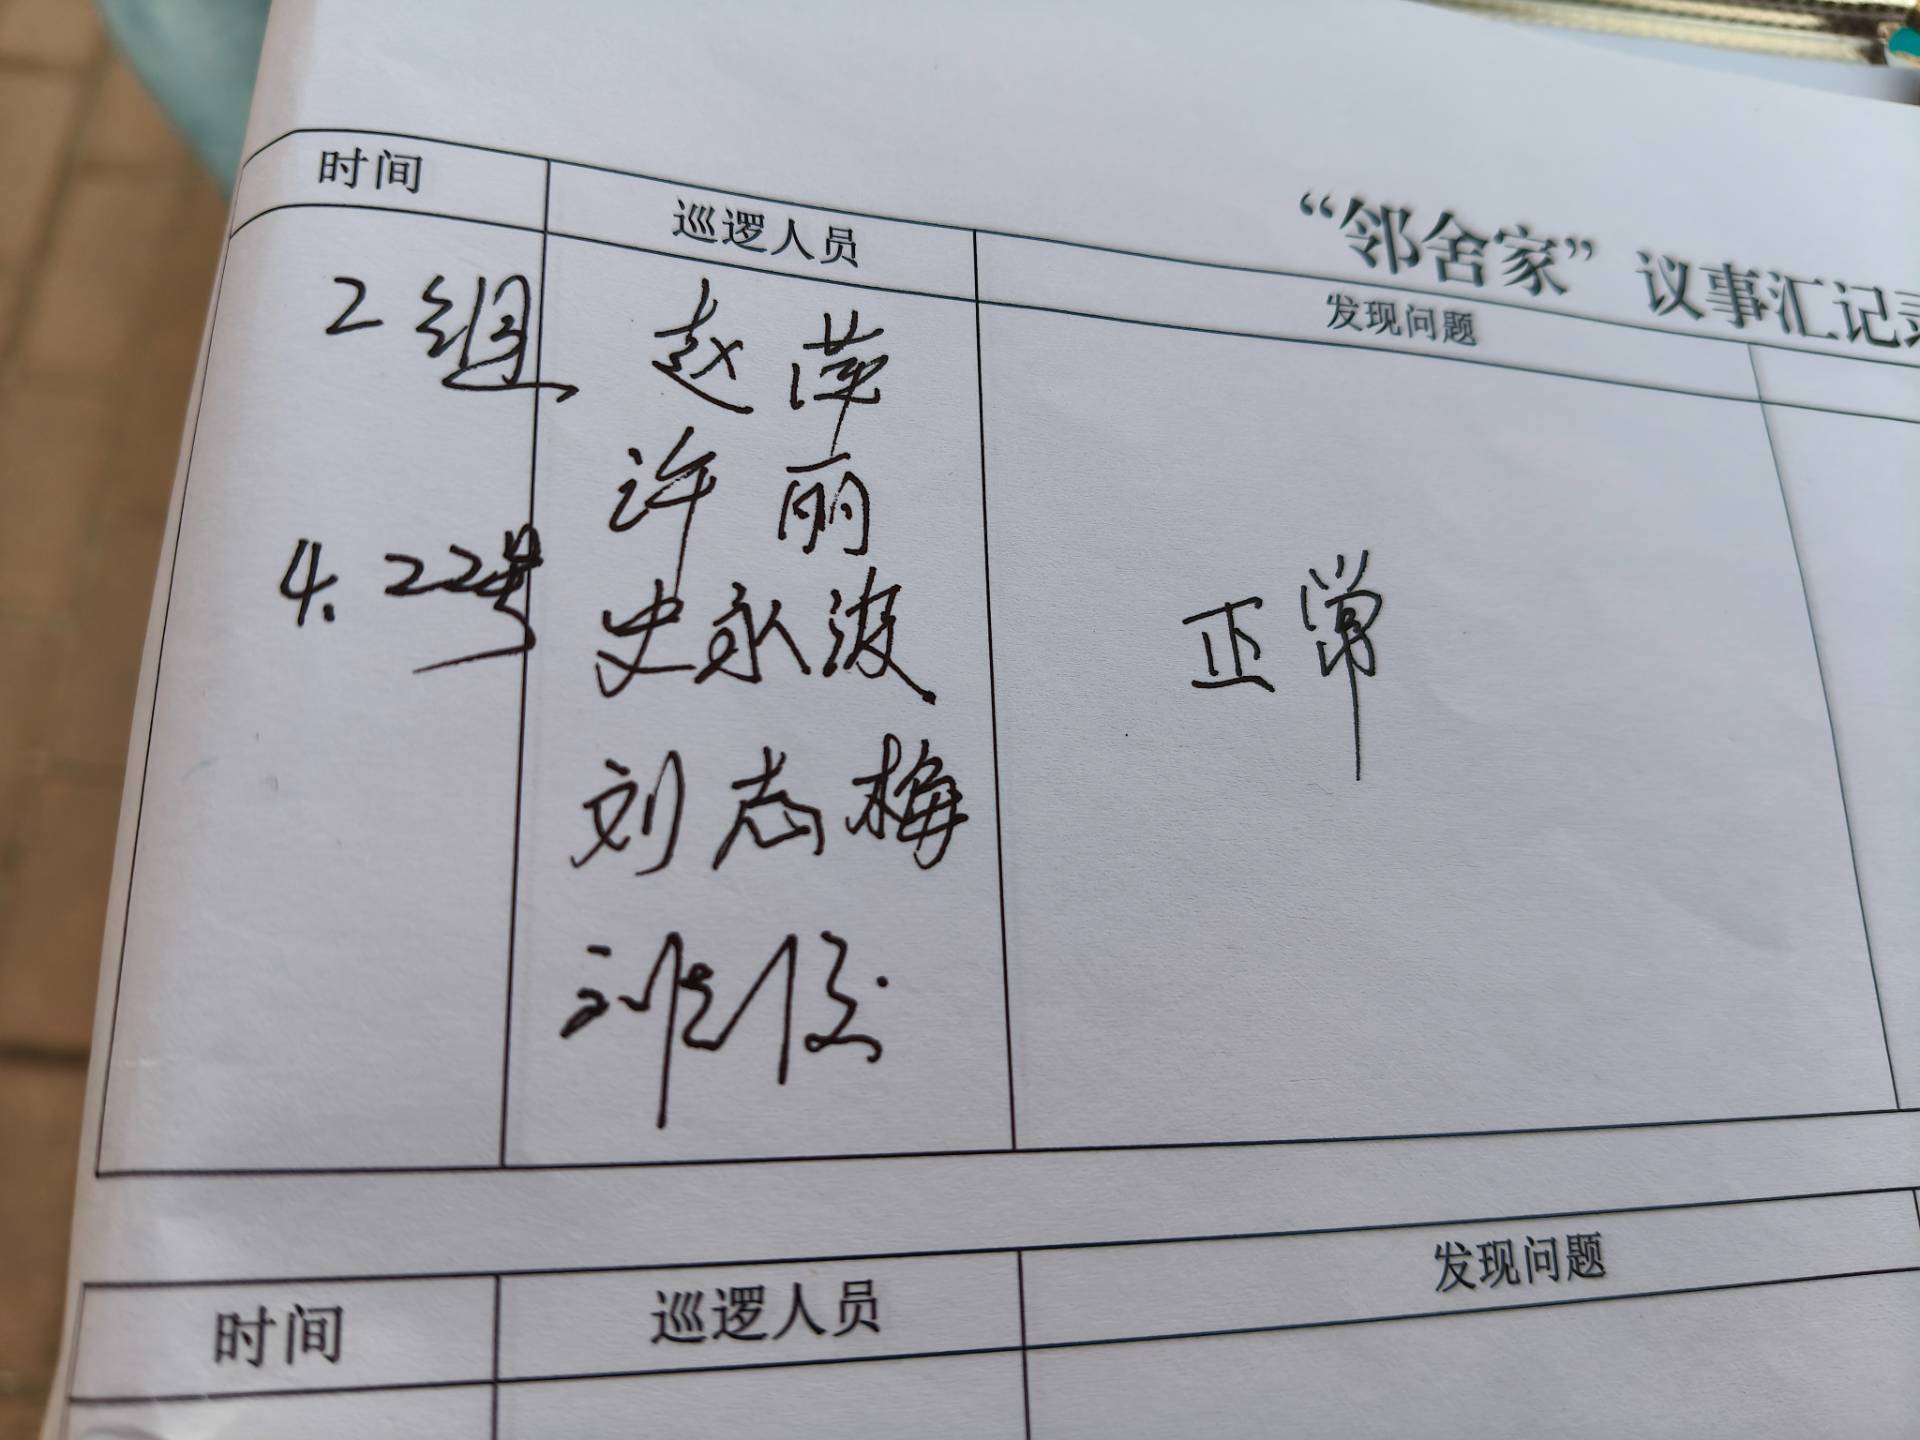 “邻舍家”议事汇记录
时间 巡逻人员 发现问题
2组 赵萍
许丽
4.22号 史永波 正常
刘志梅
时间 巡逻人员 发现问题